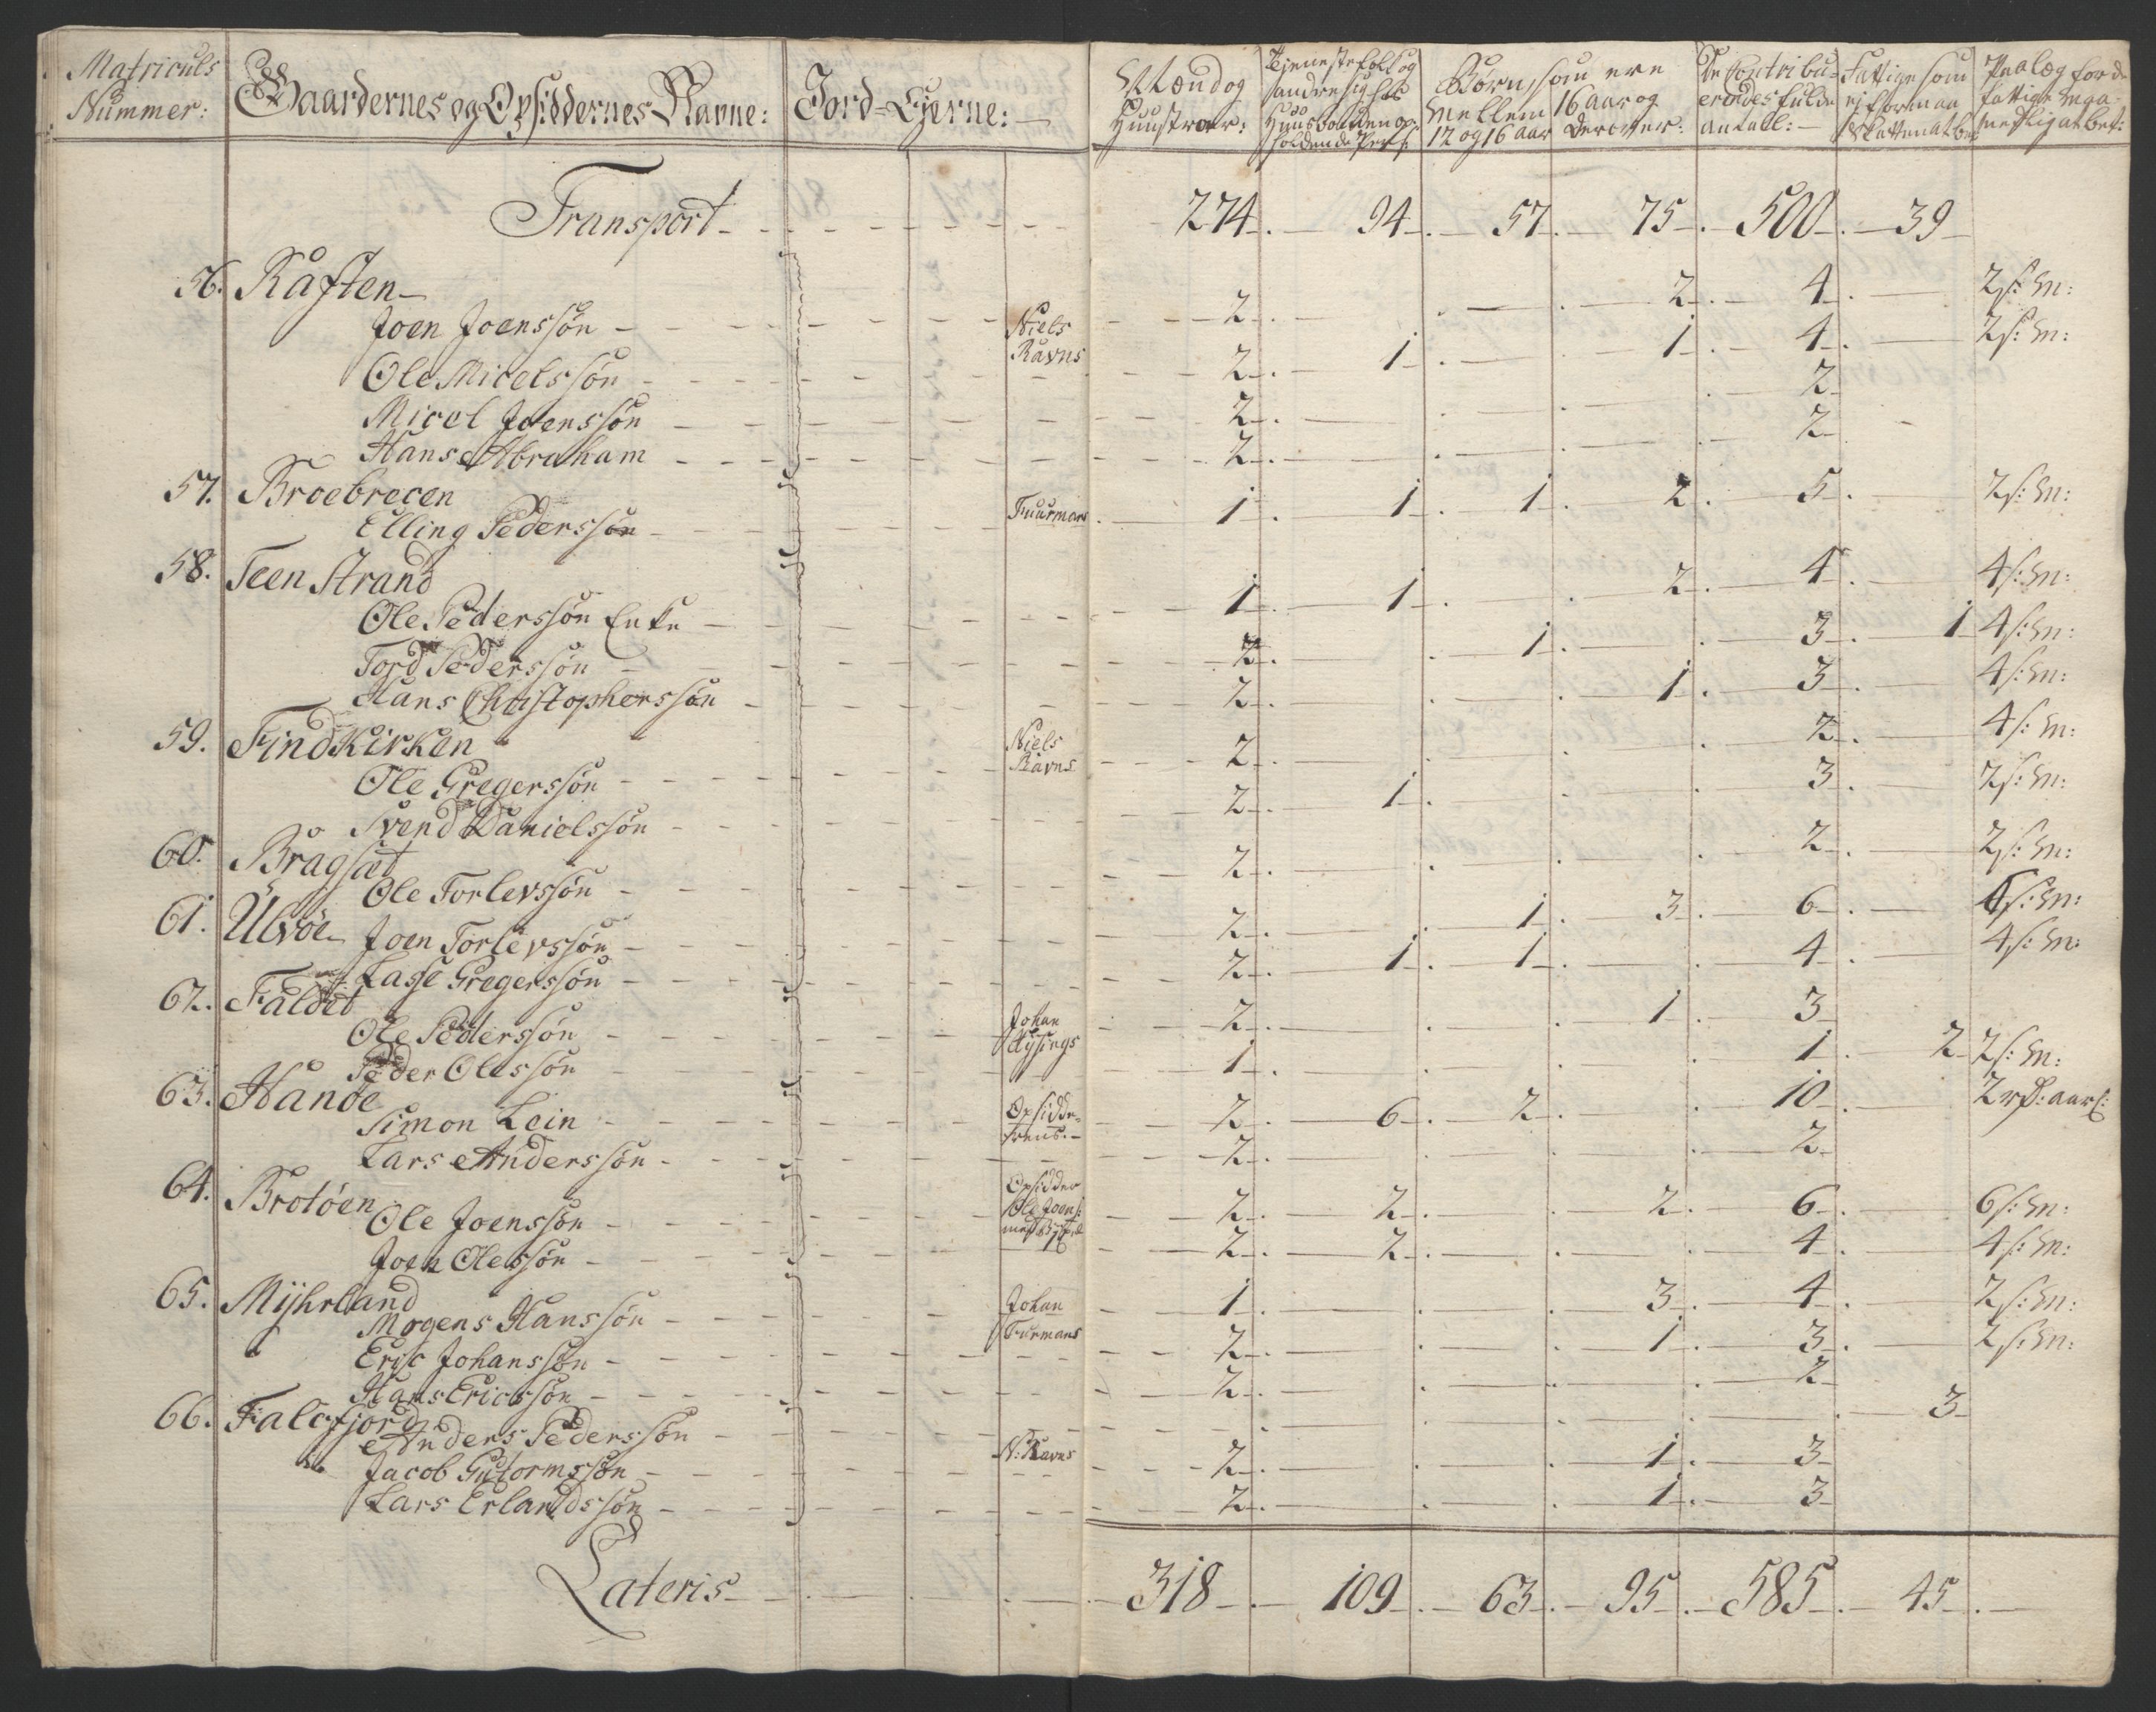 Matriculs Nummer: Gaardernes og Opsiddernes Navne: Jord-Ejerne: Mænd og Huustroer: Tienestefolk og andre sig hos Huusbonden op: holdende Pers: Børn, som ere Mellem 12 og 16 aar 16 aar og derover: De Contribu- erendes fulde antall: Fattige som ej formaa Skatten at bet: Paalæg for de fattige maa- nedlig at bet:
Transport 274 94 57 75 500 39
56. Råften
Joen Joenssøn Niels Ravns 2 2 4 2 s: M:
Ole Micelssøn 2 1 1 4 2 s: M:
Micel Joenssøn 2 2
Hans Abraham 2 2
57. Broebrecen
Elling Pederssøn Fuurmans 1 1 1 2 5 2 s: M:
58. Teen Strand
Ole Pederssøn Enke 1 1 2 4 4 s: M:
Tord Pederssøn 2 1 3 1 4 s: M:
Hans Christopherssøn 2 1 3 4 s: M:
59. Findkirken
Ole Gregerssøn Niels Ravns 2 2 4 s: M:
Svend Danielssøn 2 1 3 2 s: M:
60. Bragsæt
Ole Torlevssøn 2 2 2 s: M:
61. Ulvøe Joen Torlevssøn 2 1 3 6 s: M:
Lasse Gregerssøn 2 1 1 4 4 s: M:
62. Faldet
Ole Pederssøn Johan Hysings 2 1 3
Peder Olessøn 1 1 2 2 s: M:
63. Hanøe
Simon Lein Opsidde- 2 6 2 10 2 rd: aarl:
Lars Anderssøn 2 2
64. Brotøen
Ole Joenssøn Opsidder Ole Joens: 2 2 2 6 6 s: M:
Joen Olessøn 2 2 4 4 s: M:
65. Mijhrland
Mogens Hanssøn Johan Furmans 1 3 4 2 s: M:
Eric Johanssøn 2 1 3 2 s: M:
Hans Ericssøn 2 2
66. Falcfjord
Anders Pederssøn 3
Jacob Gutormssøn N: Ravns 2 1 3
Lars Erlandssøn 2 1 3
Lateris 318 109 63 95 585 45